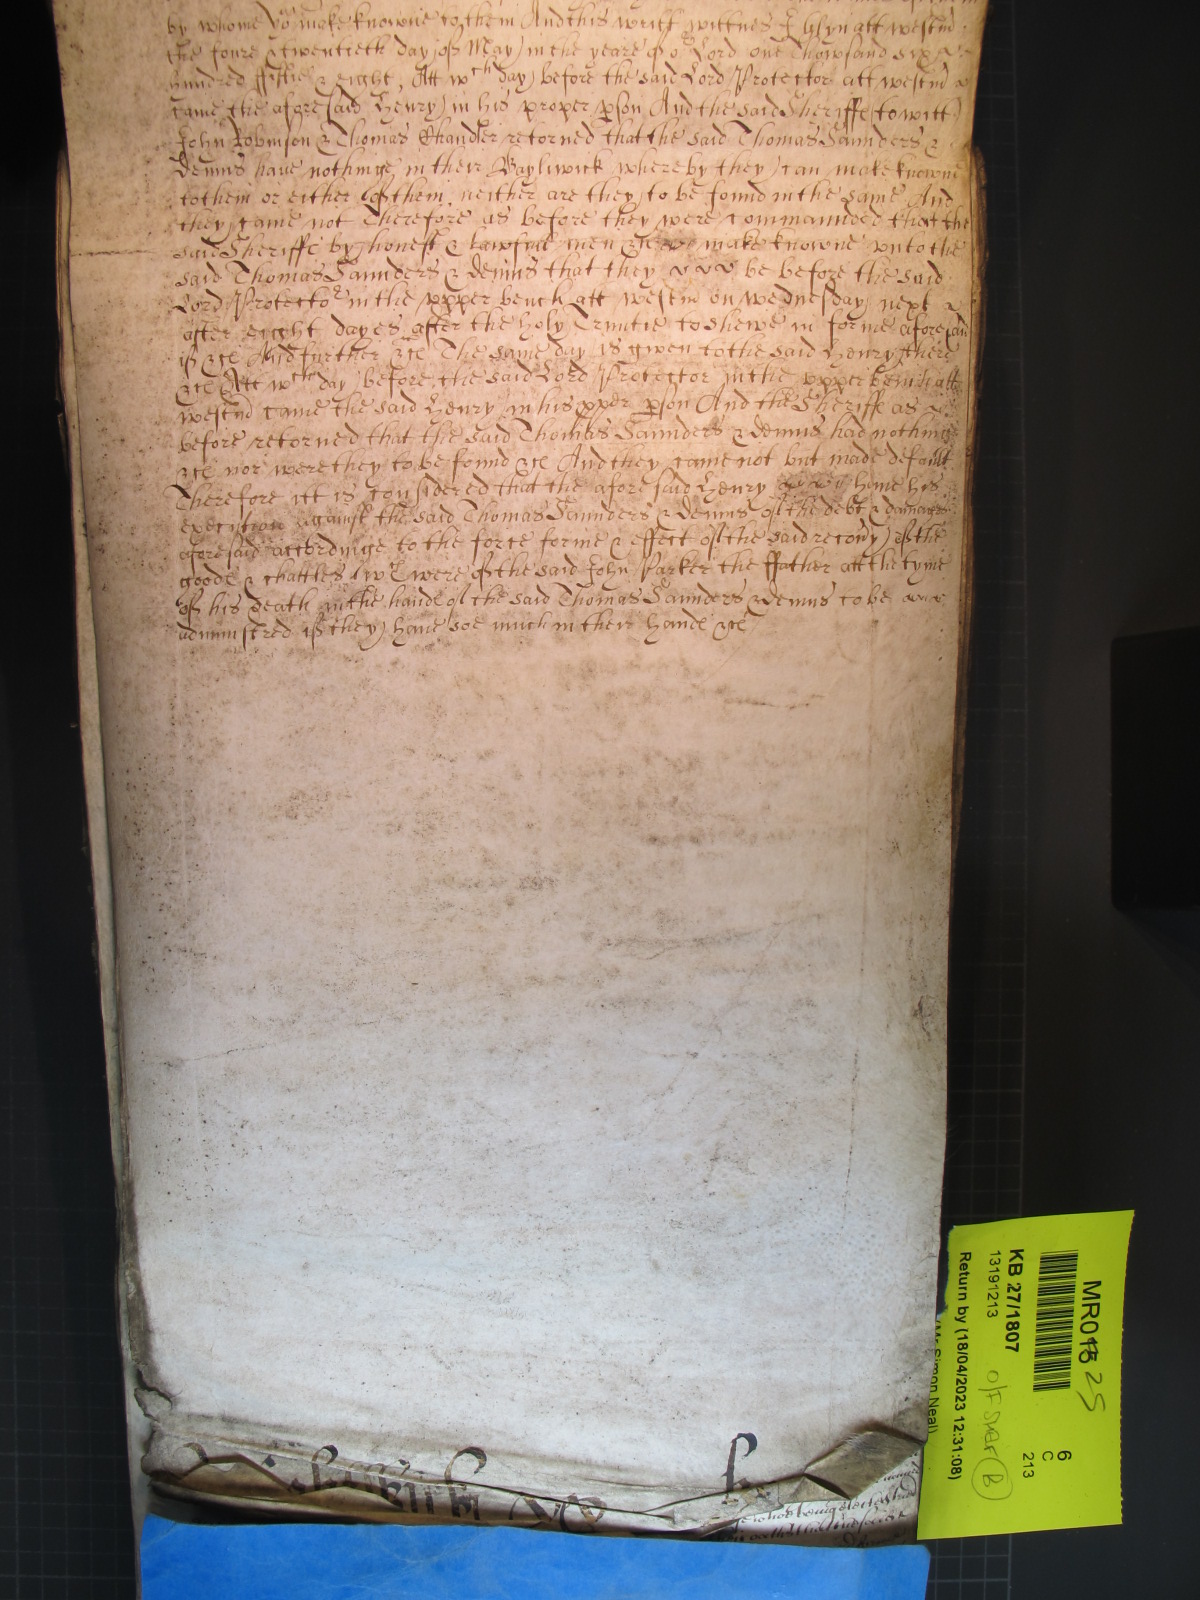 by whome you make knowne to them And this writt wittnes J Glyn att westm
the foure & twentieth day of May in the yeare of or Lord one Thowsand six
hundred ffiftie & eight, Att wch day before the said Lord Protector att westm
came the aforesaid Henry in his proper pson And the said Sheriffe to witt
John Robinson & Thomas Chandler retorned that the said Thomas Saunders &
Dennis have nothinge in their Bayliwick whereby they can make knowne
to them or either of them neither are they to be found in the same And
they came not Therefore as before they were commannded that the
said Sheriffe by honest & lawfull men &c make knowne vnto the
said Thomas Saunders & Dennis that they be before the said
Lord Protector in the vpper bench att westm on wednesday next
after eight dayes after the holy Trinitie to shewe in forme aforesaid
if &c And further &c The same day is given to the said Henry there
&c Att wch day before the said Lord Protector in the vpper bench att
westm came the said Henry in his pper pson And the Sheriffe as
before retorned that the said Thomas Saunders & Dennis had nothinge
&c nor were they to be found &c And they came not but made default
Therefore itt is considered that the aforesaid Henry have his
execution against the said Thomas Saunders & Dennis of the debt & damages
aforesaid accordinge to the force forme & effect of the said recovy of the
goods & chattles wch were of the said John Parker the ffather att the tyme
of his death in the hands of the said Thomas Saunders & Dennis to be
administred if they have soe much in their hands &c
MR015 25
KB 27/1807
13191213
Return by (18/04/2023 12:31:08)
(Mr Simon Neal)
6
C
213
B